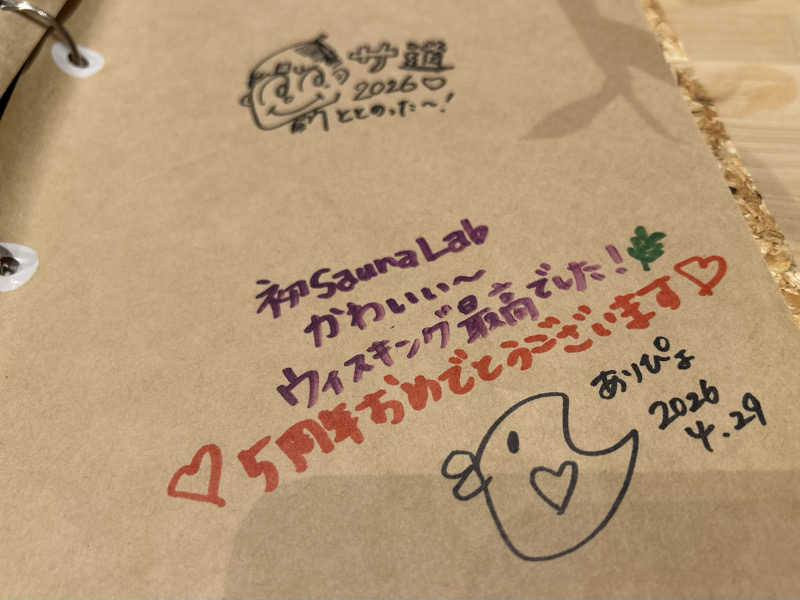 サ道
2026♡
ととのった〜!
初SaunaLab
かわいい〜
ウィスキング最高でした!
♡5周年おめでとうございます♡
ありぴよ
2026
4.29